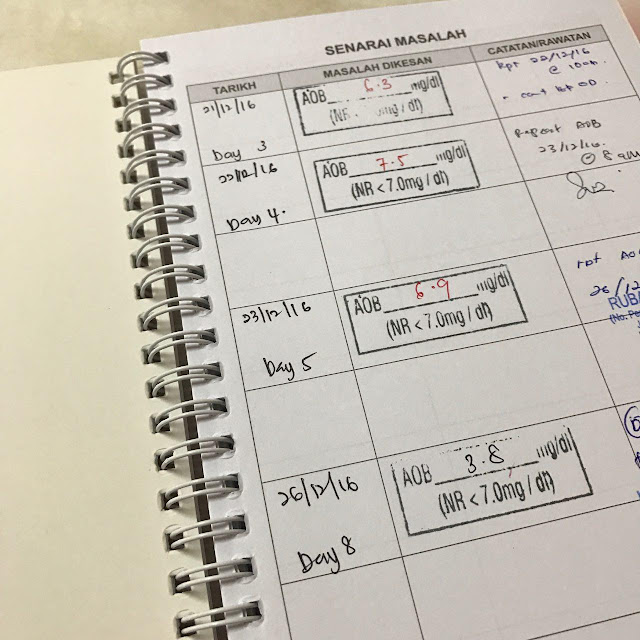 SENARAI MASALAH
TARIKH MASALAH DIKESAN CATATAN/RAWATAN
21/12/16
Day 3
AOB 6.3 mg/dl
(NR mg/dl)
Rpt 22/12/16
@
22/12/16
Day 4.
AOB 7.5 mg/dl
(NR < 7.0mg / dl)
Repeat AOB
23/12/16
@ 8
23/12/16
Day 5
AOB 6.9 mg/dl
(NR < 7.0mg / dl)
rpt AO
26/12
RUB
26/12/16
Day 8
AOB 3.8 mg/dl
(NR < 7.0mg / dl)